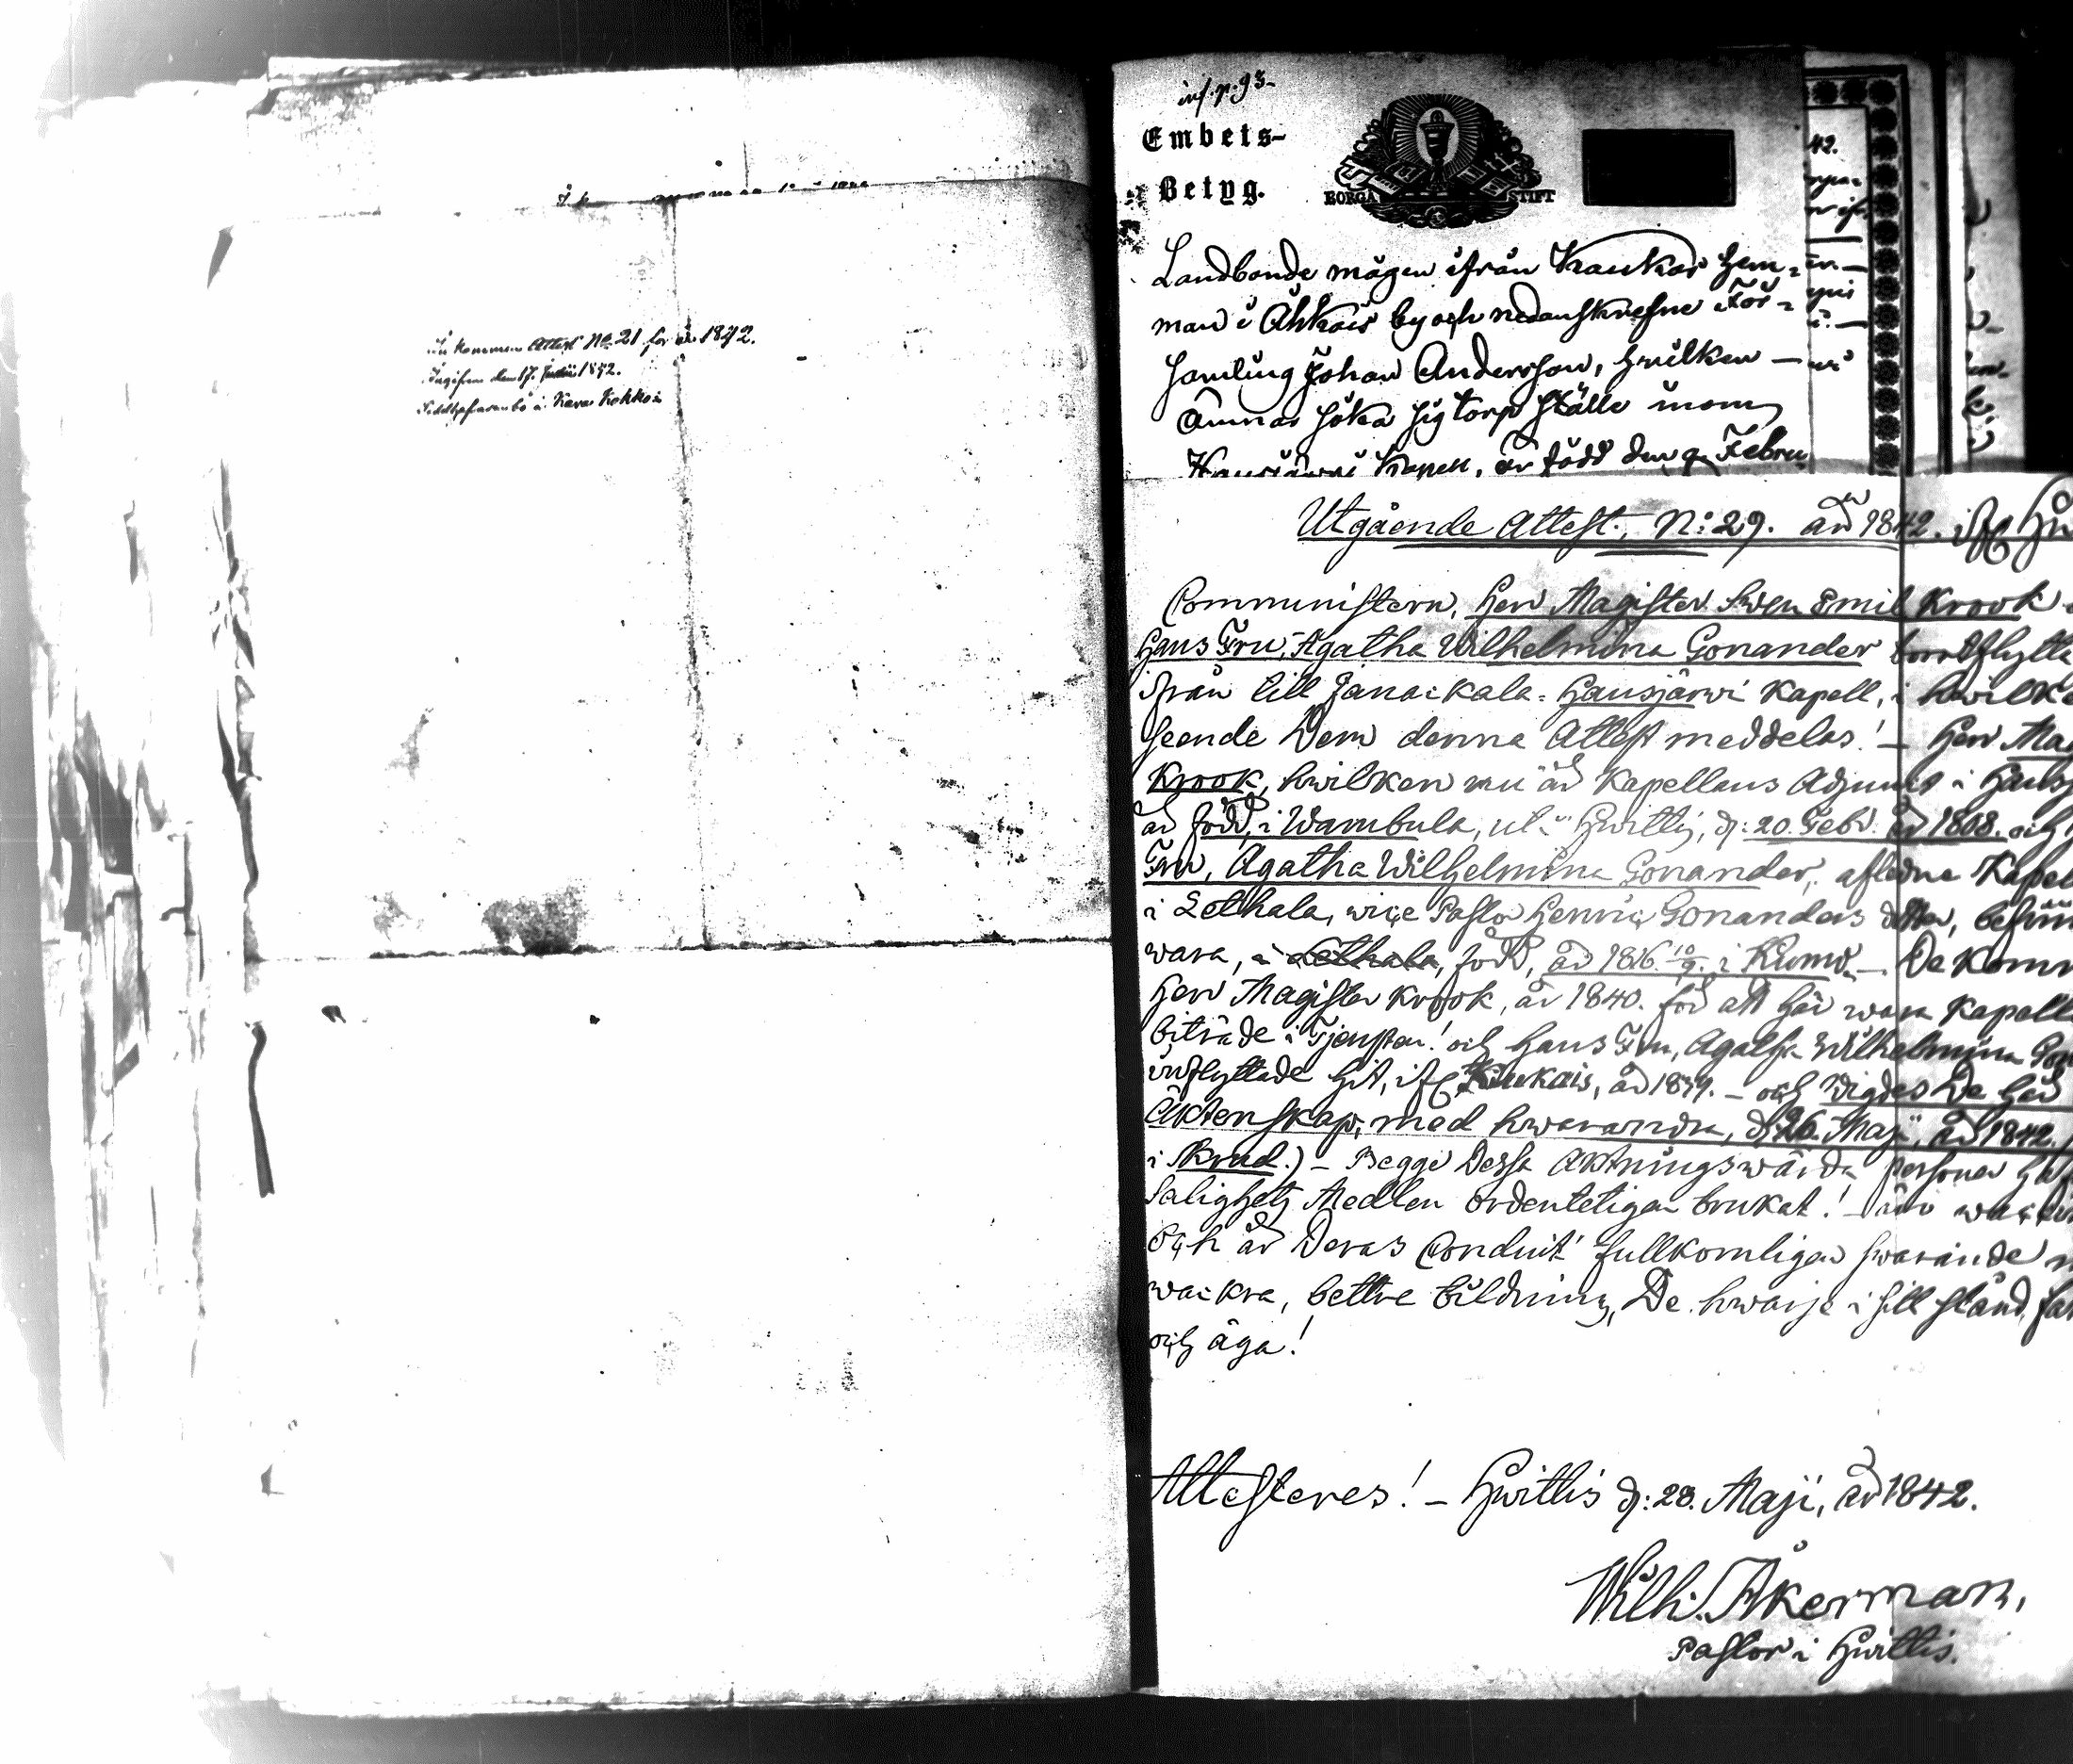 Inkommen Attest No 21 för år 1842.
Ingifven den 17. Junii 1842.
inf. p. 93.
Embets-
Betyg.
BORGÅ STIFT
Landbonde mågen ifrån Kaukas hem-
man i Åhkois by och nedanskrefne För-
samling Johan Andersson, hvilken —
ämnar söka sig torp ställe inom
Hausjärvi Kapell, är född den 9 Febru
42.
Utgående Attest. N:o 29. år 1842. ifr.
Communistern, Herr Magister Swen Emil Krook
Hans Fru, Agatha Wilhelmina Gonander bortflytta
ifrån till Janackala. Hausjärwi Kapell, i hwilke
seende Dem denna Attest meddelas! — Herr Mag
Krook, hwilken nu är Kapellans Adjunct i Hausj
är född, i Wambula, uti Hwittis, d: 20. Febr. år 1808. och
Fru, Agatha Wilhelmina Gonander, afledne Kapel
i Lethala, vice Pastor Henric Gonanders dotter,
wara, i Lethala, född, år 1816. 10/9. i Kumo. — De Kom
Herr Magister Krook, år 1840. för att här wara Kapell
biträde i Tjensten! och hans Fru, Agatha Wilhelmina Gon
inflyttade hit, ifr. Kiukais, år 1839. — och wigdes De här
Äktenskap, med hwarandra, d. 26. Maji, år 1842.
i Skrud.) — Begge Dessa Aktningswärda personer haf
Salighets Medlen ordenteligen brukat! —
Och är Deras Conduit fullkomligen swarande
wackra, bettre bildning, De hwarje i sitt stånd,
och äga!
Attesteres! — Hwittis d: 28. Maji, år 1842.
Wilh. Åkerman,
Pastor i Hwittis.